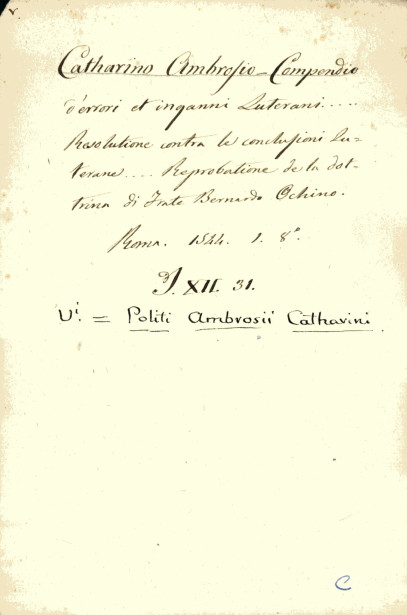 Catharino Ambrosio - Compendio
d'errori et inganni Luterani....
Resolutione contra le conclusioni Lu=
terane.... Reprobatione de la dot=
trina di Frate Bernardo Ochino.
Roma. 1544. 1. 8º.
J. XII. 31.
Vi. = Politi Ambrosii Catharini
C